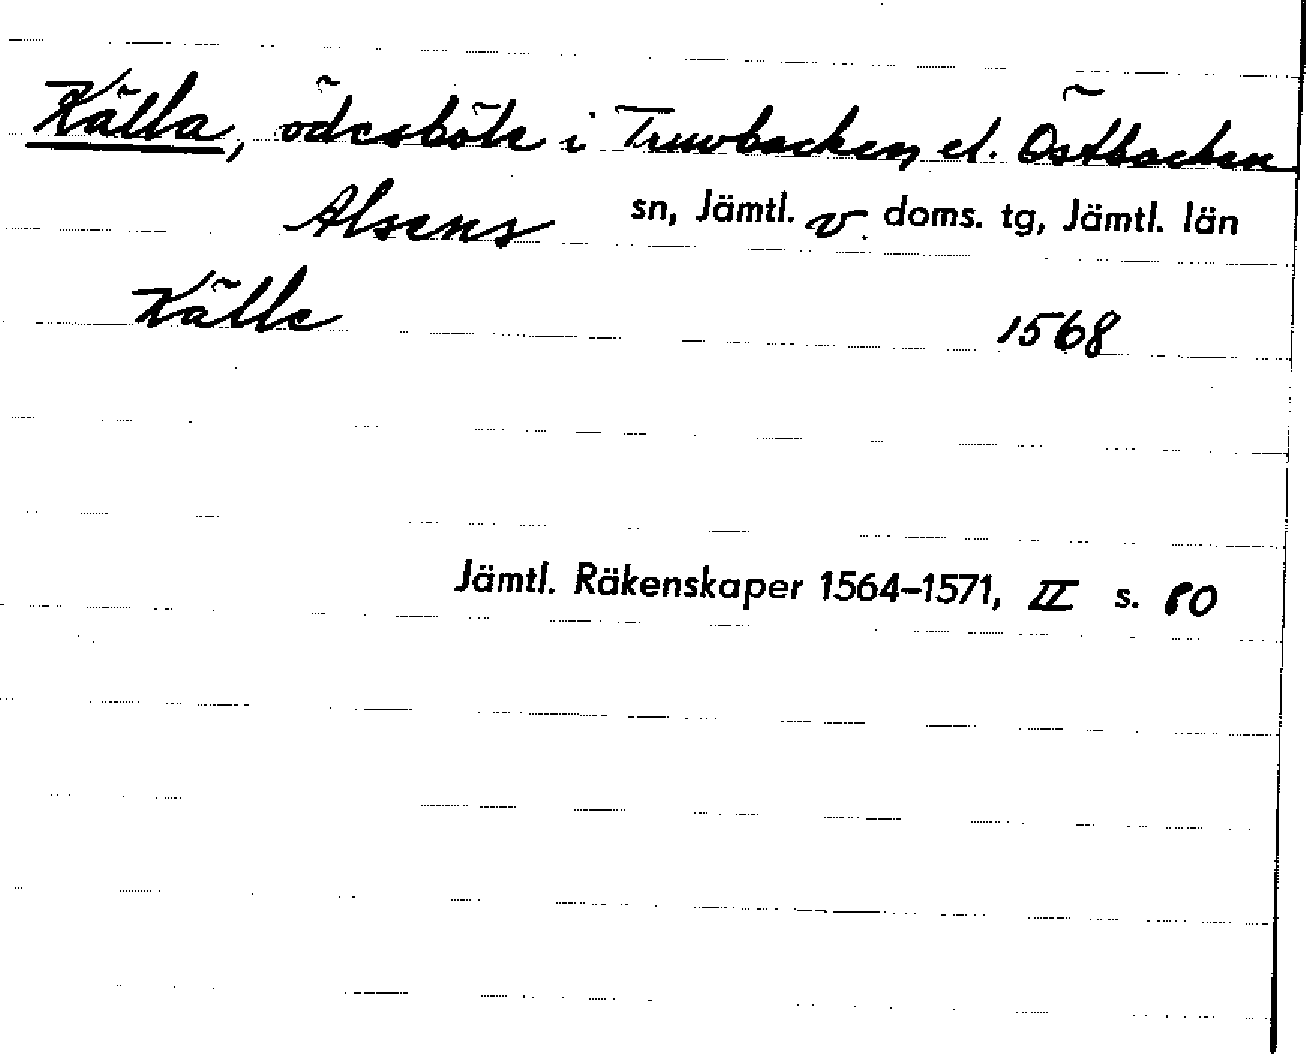 Källa, ödesböle i Truvbacken el. Östbacken
Alsens sn, Jämtl. v. doms. tg, Jämtl. län
Källe 1568
Jämtl. Räkenskaper 1564–1571, II s. 80